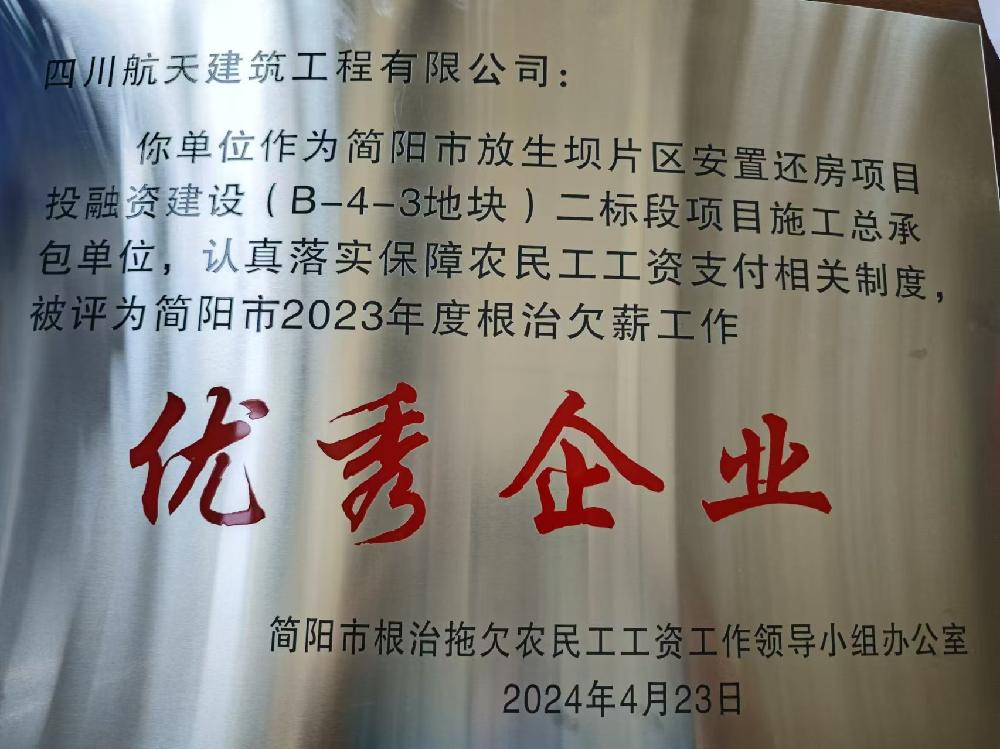 四川航天建筑工程有限公司：
你单位作为简阳市放生坝片区安置还房项目
投融资建设（B-4-3地块）二标段项目施工总承
包单位，认真落实保障农民工工资支付相关制度，
被评为简阳市2023年度根治欠薪工作
优秀企业
简阳市根治拖欠农民工工资工作领导小组办公室
2024年4月23日